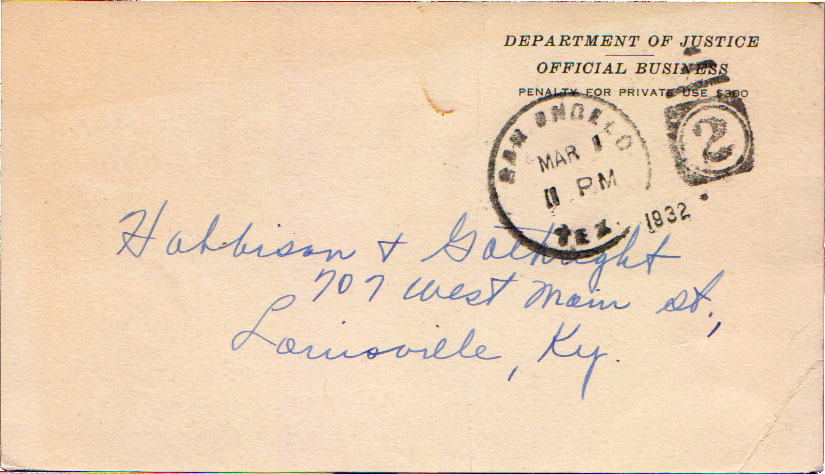 DEPARTMENT OF JUSTICE
OFFICIAL BUSINESS
PENALTY FOR PRIVATE USE $300
SAN ANGELO
MAR 1
PM
TEX.
1932
2
Habbison & Gathright
707 West Main st.,
Louisville, Ky.